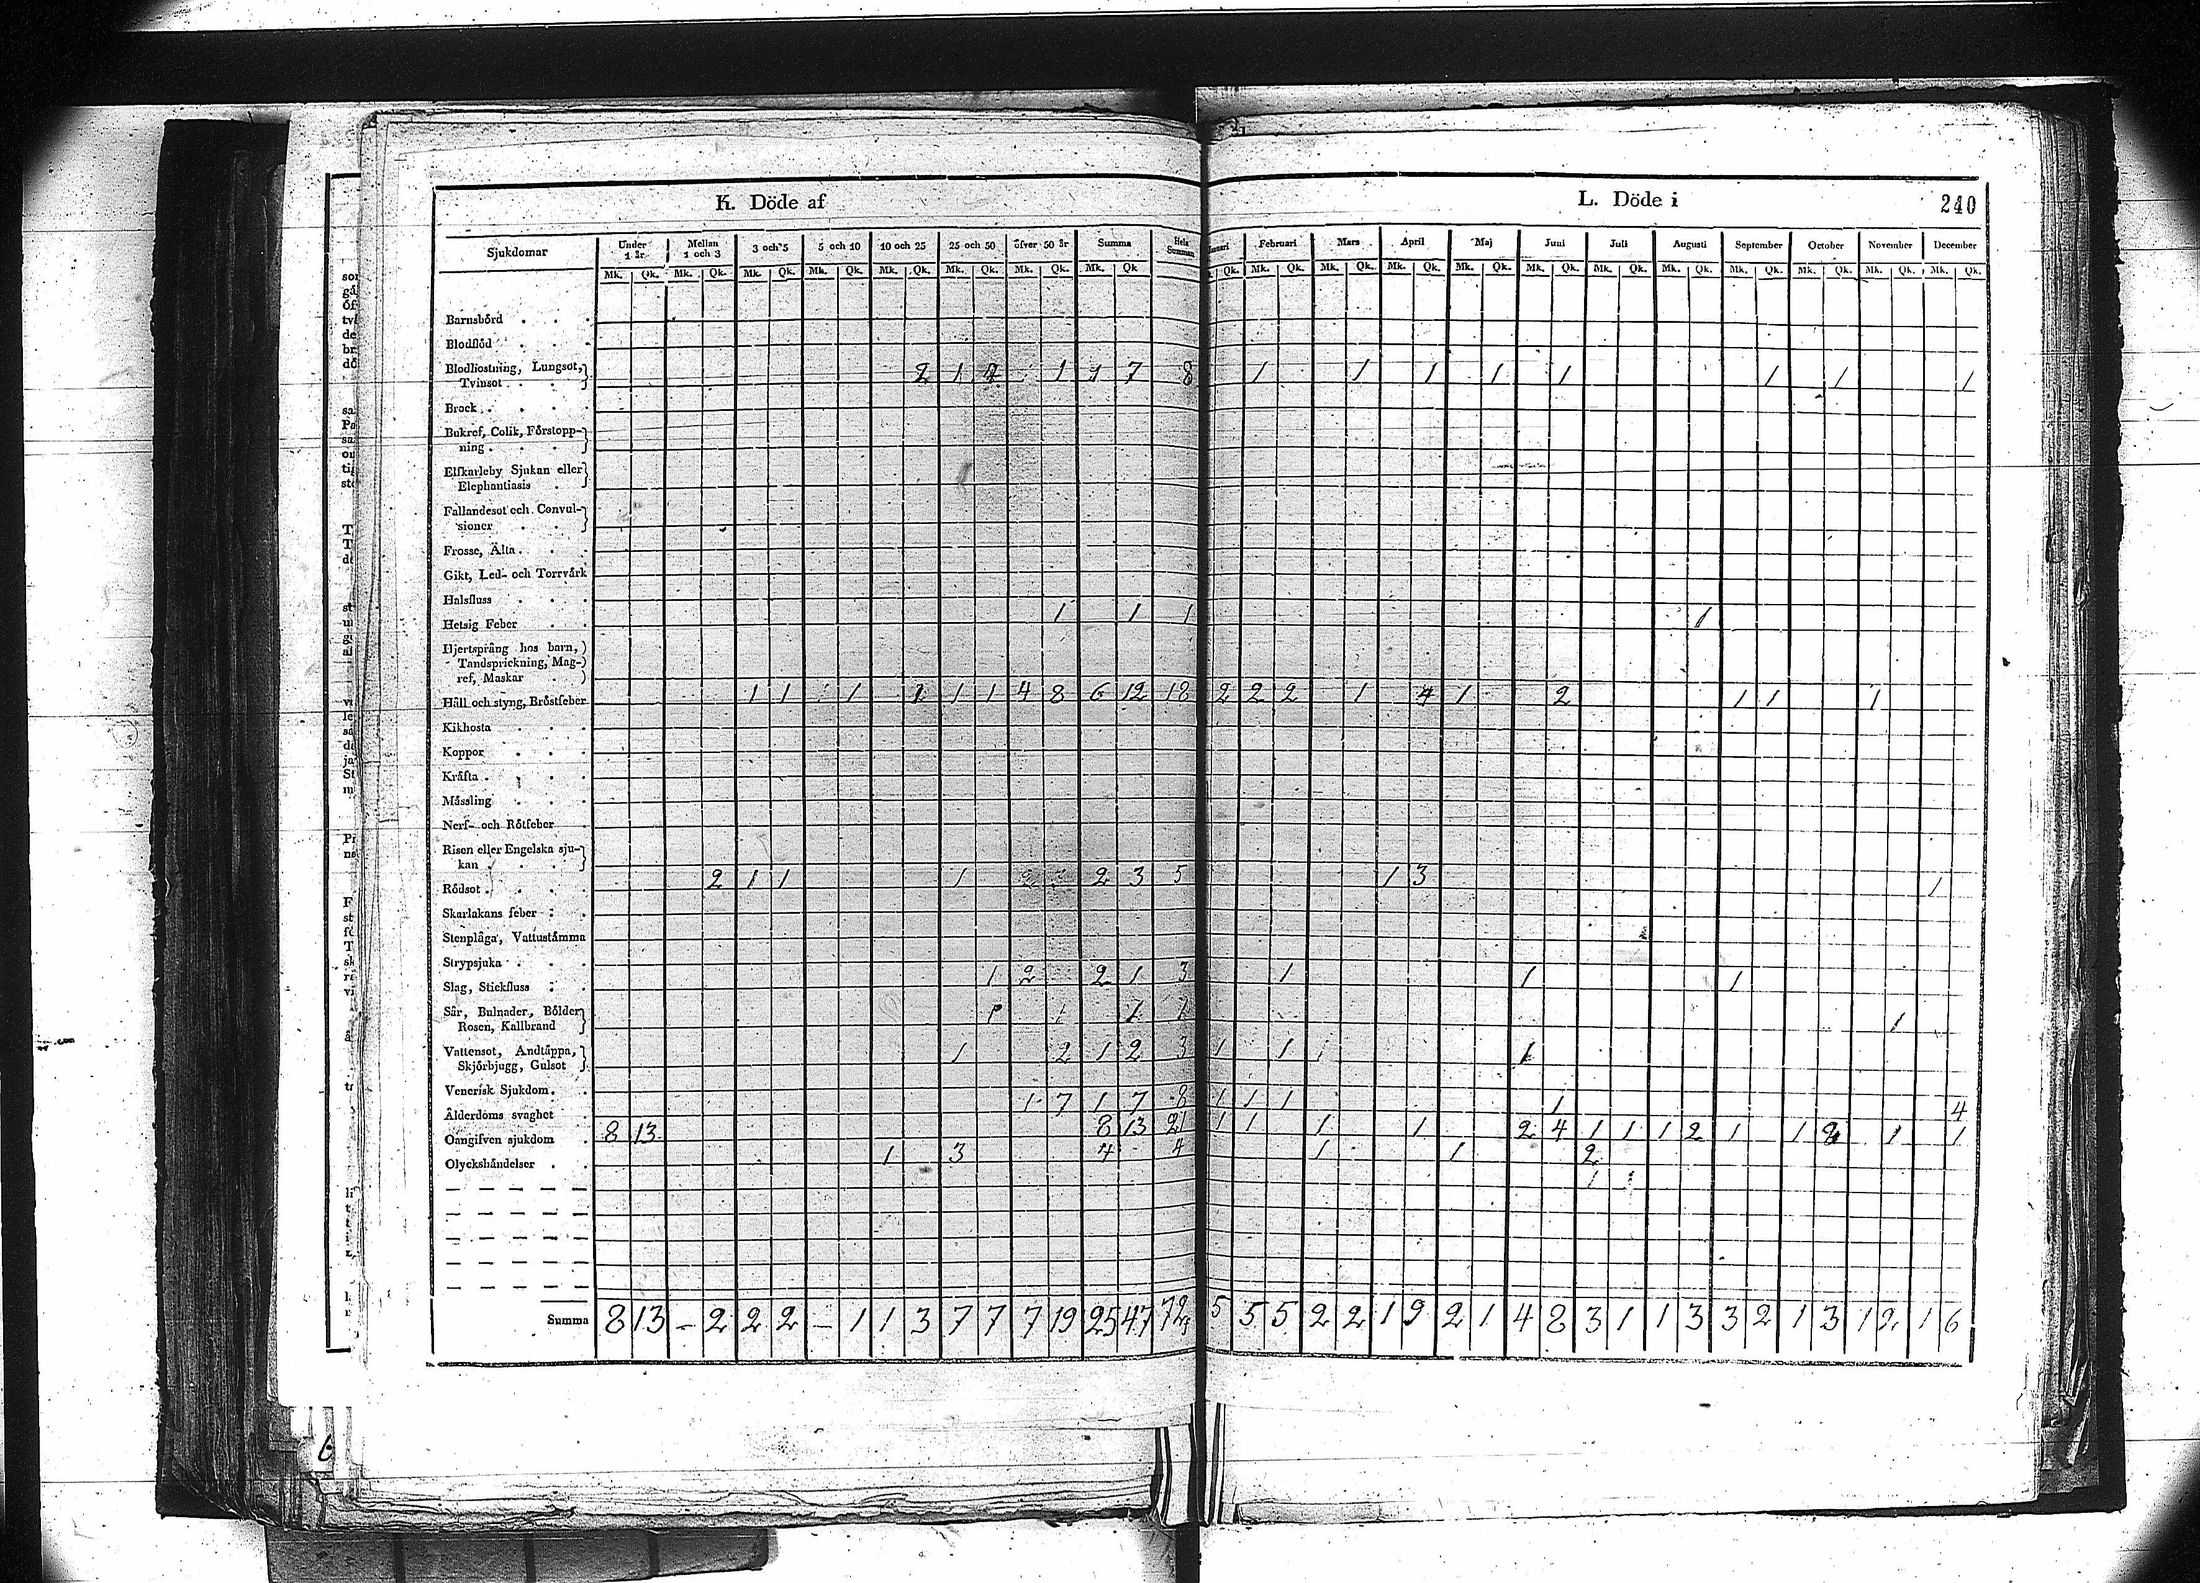 K. Döde af L. Döde i 240
Sjukdomar Under 1 år Mellan 1 och 3 3 och 5 5 och 10 10 och 25 25 och 50 öfver 50 år Summa Hela Summan Februari Mars April Maj Juni Juli Augusti September October November December
Mk. Qk. Mk. Qk. Mk. Qk. Mk. Qk. Mk. Qk. Mk. Qk. Mk. Qk. Mk. Qk Qk. Mk. Qk. Mk. Qk. Mk. Qk. Mk. Qk. Mk. Qk. Mk. Qk. Mk. Qk. Mk. Qk. Mk. Qk. Mk. Qk. Mk. Qk.
Barnsbörd . . .
Blodflöd . . .
Blodhostning, Lungsot,
Tvinsot . . . 2 1 4 1 1 7 8 1 1 1 1 1 1 1 1
Brock . . . .
Bukref, Colik, Förstopp-
ning . . . .
Elfkarleby Sjukan eller
Elephantiasis .
Fallandesot och Convul-
sioner . . .
Frosse, Älta . . .
Gikt, Led- och Torrvärk
Halsfluss . . .
Hetsig Feber . . 1 1 1 1
Hjertsprång hos barn,
Tandsprickning, Mag-
ref, Maskar . .
Håll och styng, Bröstfeber 1 1 1 1 1 1 4 8 6 12 18 2 2 2 1 4 1 2 1 1 1
Kikhosta . . .
Koppor . . .
Kräfta . . . .
Mässling . . .
Nerf- och Rötfeber .
Risen eller Engelska sju-
kan . . . .
Rödsot . . . . 2 1 1 1 2 3 5 1 3 1
Skarlakans feber . .
Stenplåga, Vattustämma
Strypsjuka . . .
Slag, Stickfluss . . 1 2 2 1 3 1 1 1
Sår, Bulnader, Bölder
Rosen, Kallbrand 1 1 1 1
Vattensot, Andtäppa,
Skjörbjugg, Gulsot 1 2 1 2 3 1 1 1
Venerisk Sjukdom . .
Ålderdoms svaghet . 1 7 1 7 8 1 1 1 1 4
Oangifven sjukdom . 8 13 8 13 21 1 1 1 1 2 4 1 1 1 2 1 1 2 1 1
Olyckshändelser . . 1 3 4 4 1 1 2
1 1
Summa 8 13 - 2 2 2 - 1 1 3 7 7 7 19 25 47 72 5 5 5 2 2 1 9 2 1 4 8 3 1 1 3 3 2 1 3 1 2 1 6